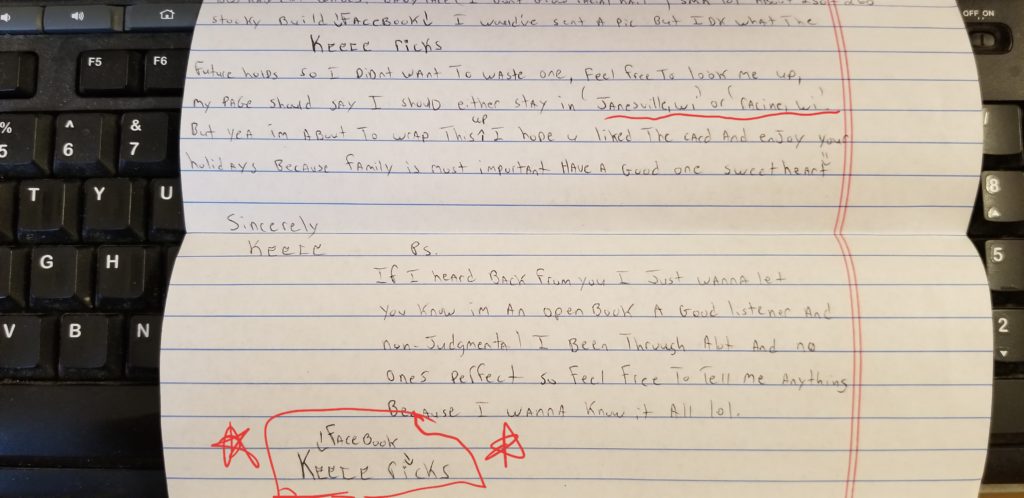 OFF ON
stocky Build ↓FACEBOOK↓ I would've sent A pic But IDK what The
Keece ricks
F5 F6
Future holds so I Didnt wANT To wAste one, Feel free To look me up,
my PAGE should SAY I should either stAy in (JAnesville, wi) or (rAcine, wi).
up
But yeA im ABout To wrap This↑ I hope u liked The cArd And enJoy your
holidAys BecAuse fAmily is most importAnt HAve A Good one sweetheart
% ^ &
5 6 7
T Y U
8
Sincerely
Keece Ps.
G H
5
If I heArd BACk from you I Just wAnnA let
you Know im An open Book A Good listener And
V B N
2
non-JudgmentAl I Been Through Alot And no
ones perfect so Feel Free To Tell me Anything
BecAuse I wAnnA Know it All lol.
↓FaceBook
Keece ricks